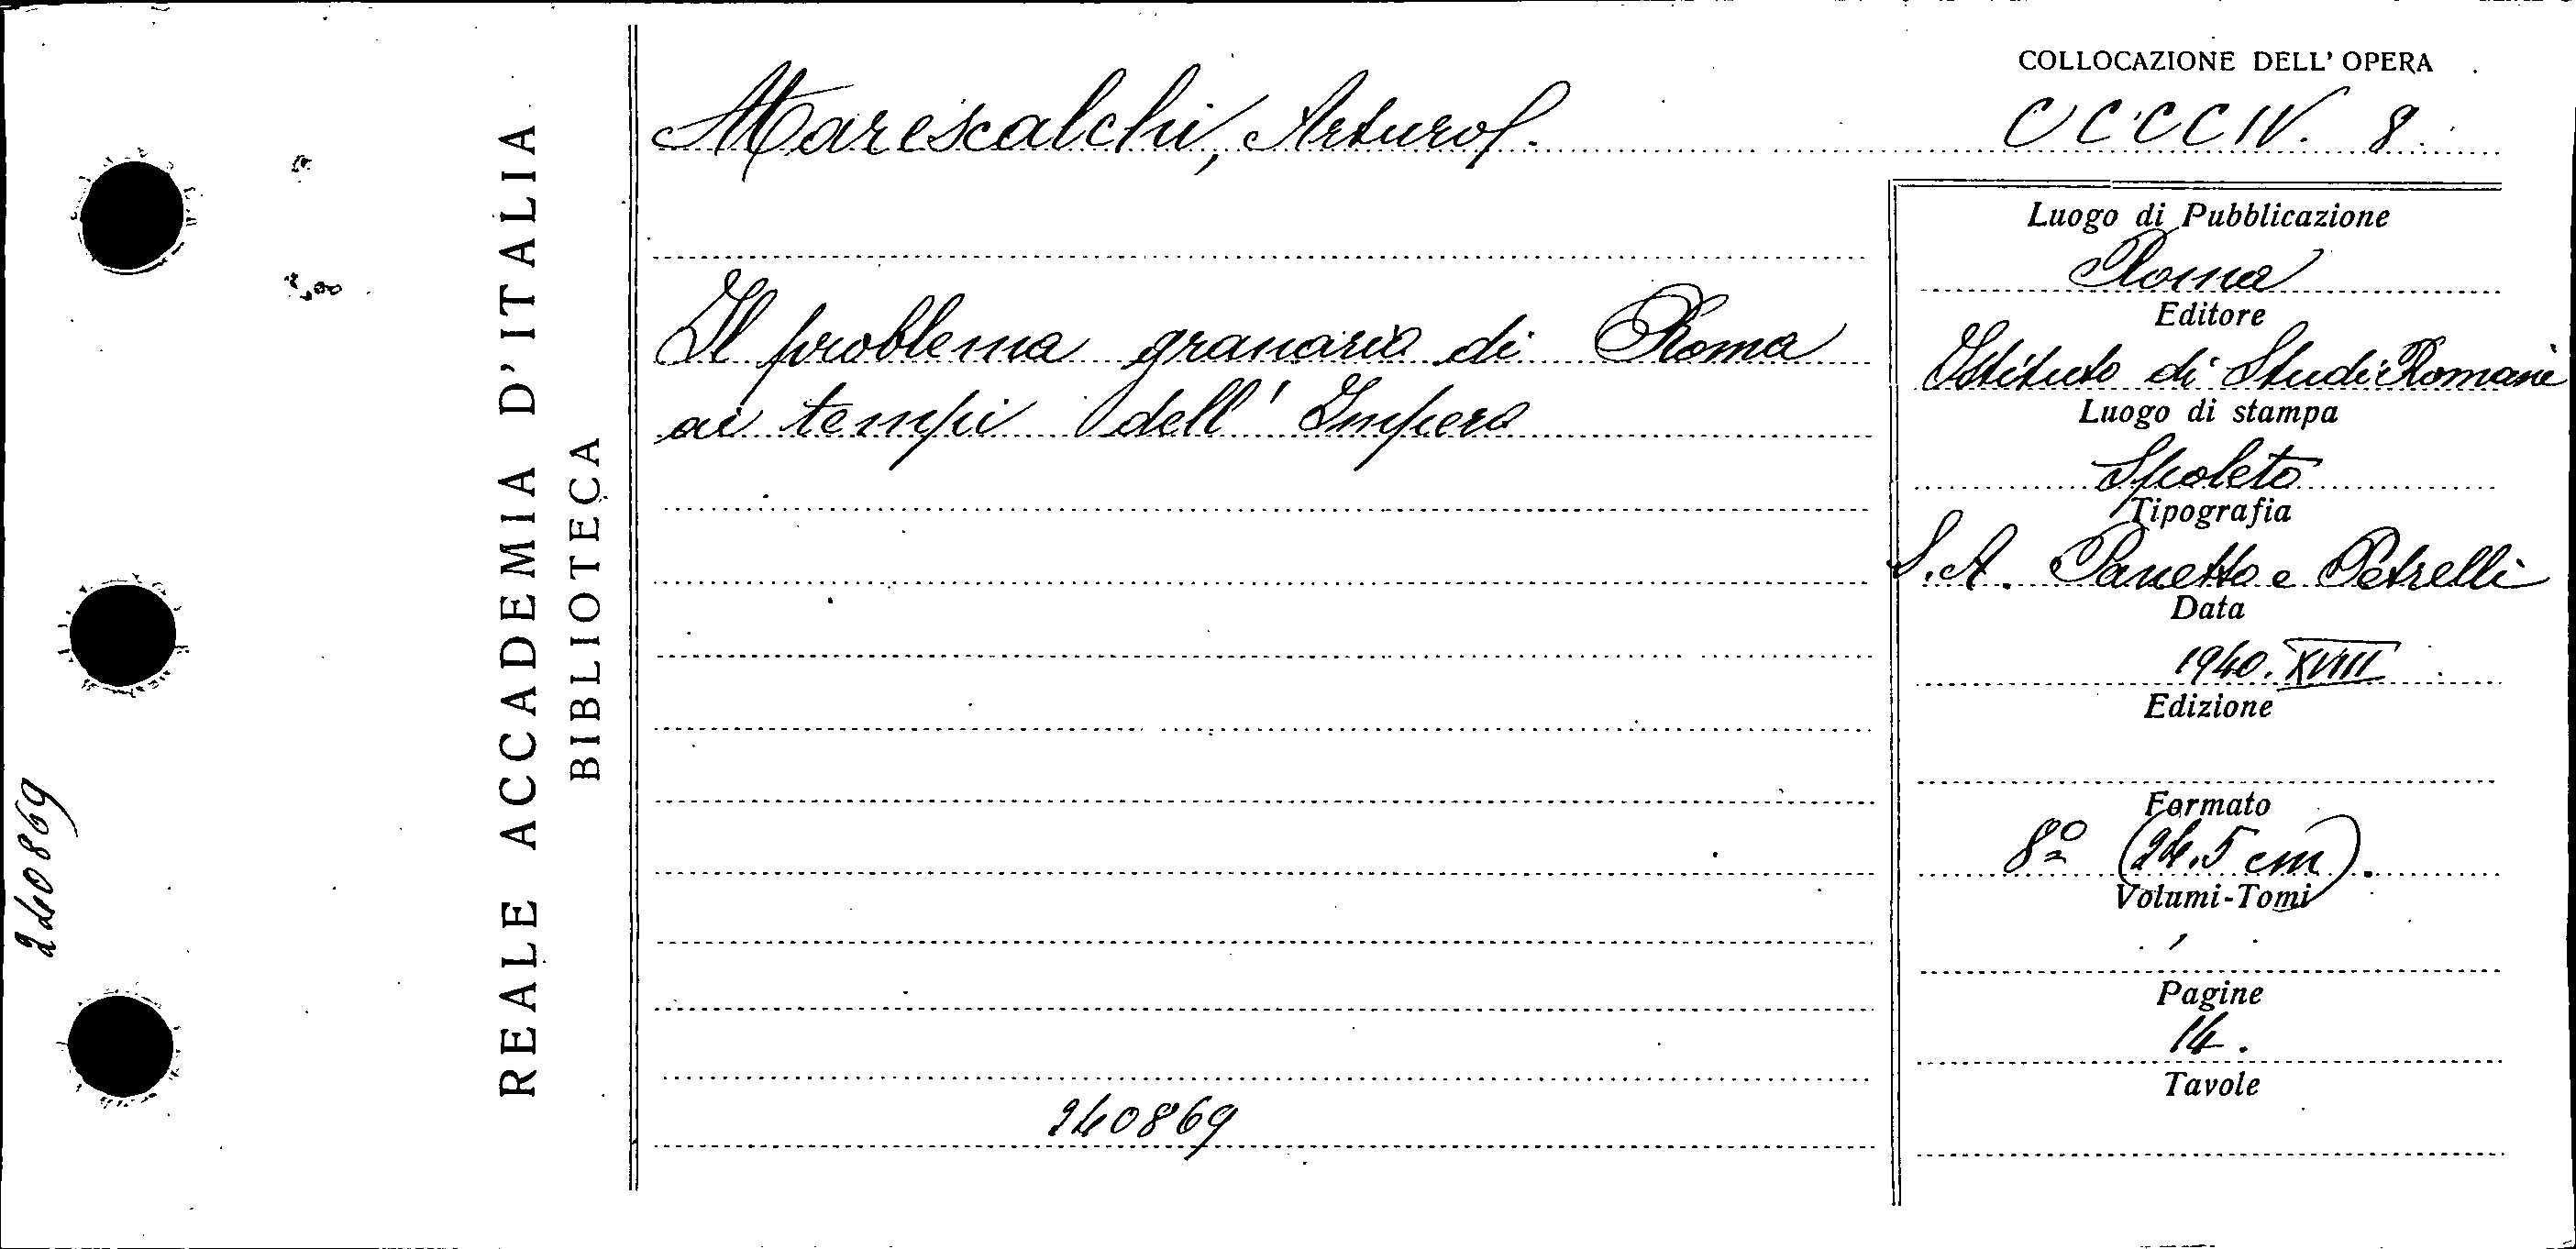 COLLOCAZIONE DELL' OPERA
CCCCIV. 8
Marescalchi, Arturo
Il problema granario di Roma
ai tempi dell' Impero
240869
Luogo di Pubblicazione
Roma
Editore
Istituto di Studi Romani
Luogo di stampa
Spoleto
Tipografia
S.A. Panetto e Petrelli
Data
1940. XVIII
Edizione
Formato
8º (24.5 cm).
Volumi-Tomi
Pagine
14.
Tavole
REALE ACCADEMIA D'ITALIA
BIBLIOTECA
240869